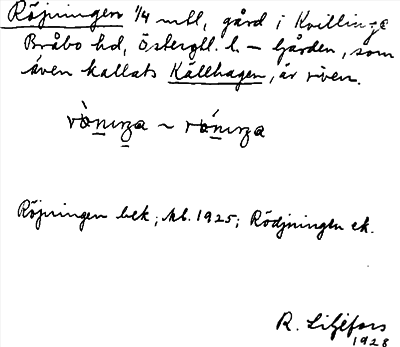 Röjningen 1/4 mtl, gård i Kvillinge
Bråbo hd, Östergtl. l. – Gården, som
även kallats Källhagen, är riven.
Röjningen bek; Mb. 1925; Rödjningen ek.
R. Liljefors
1928